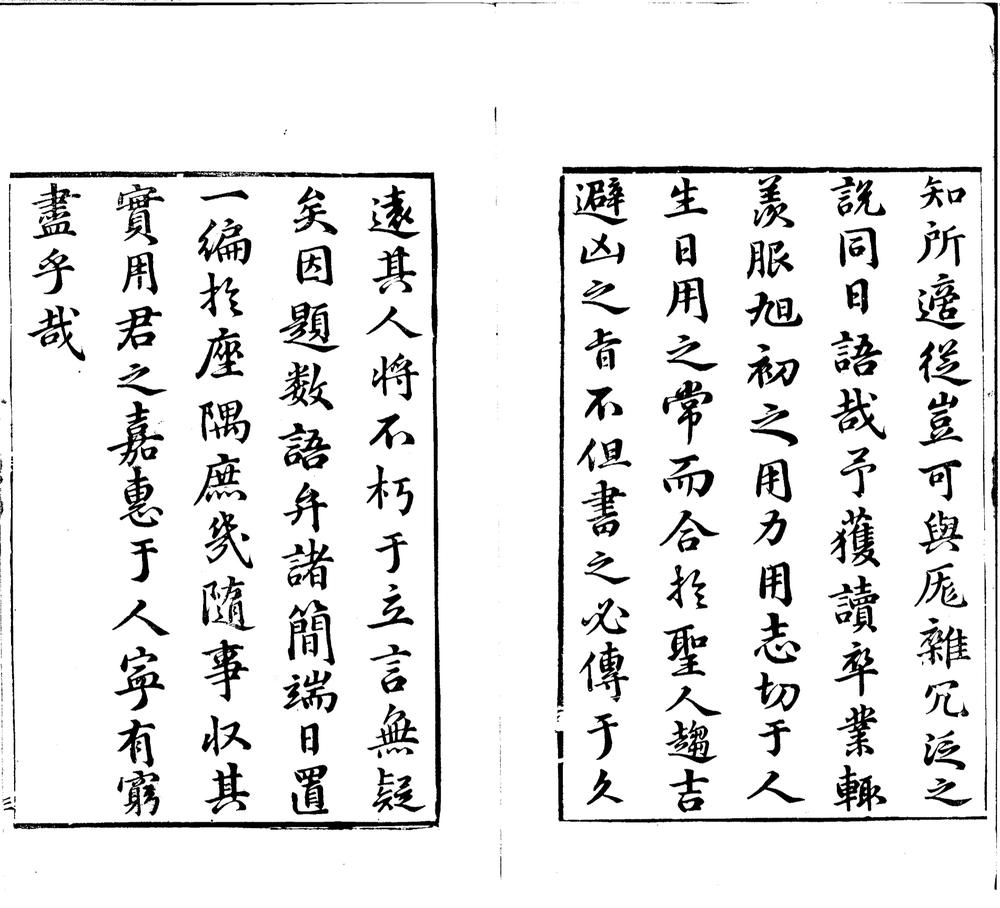 知所適從豈可與厖雜冗泛之
說同日語哉予獲讀卒業輙
羨服旭初之用力用志切于人
生日用之常而合於聖人趨吉
避凶之旨不但書之必傳于久
遠其人將不朽于立言無疑
矣因題数語弁諸簡端日置
一編於座隅庶幾隨事収其
實用君之嘉惠于人寧有窮
盡乎哉
三